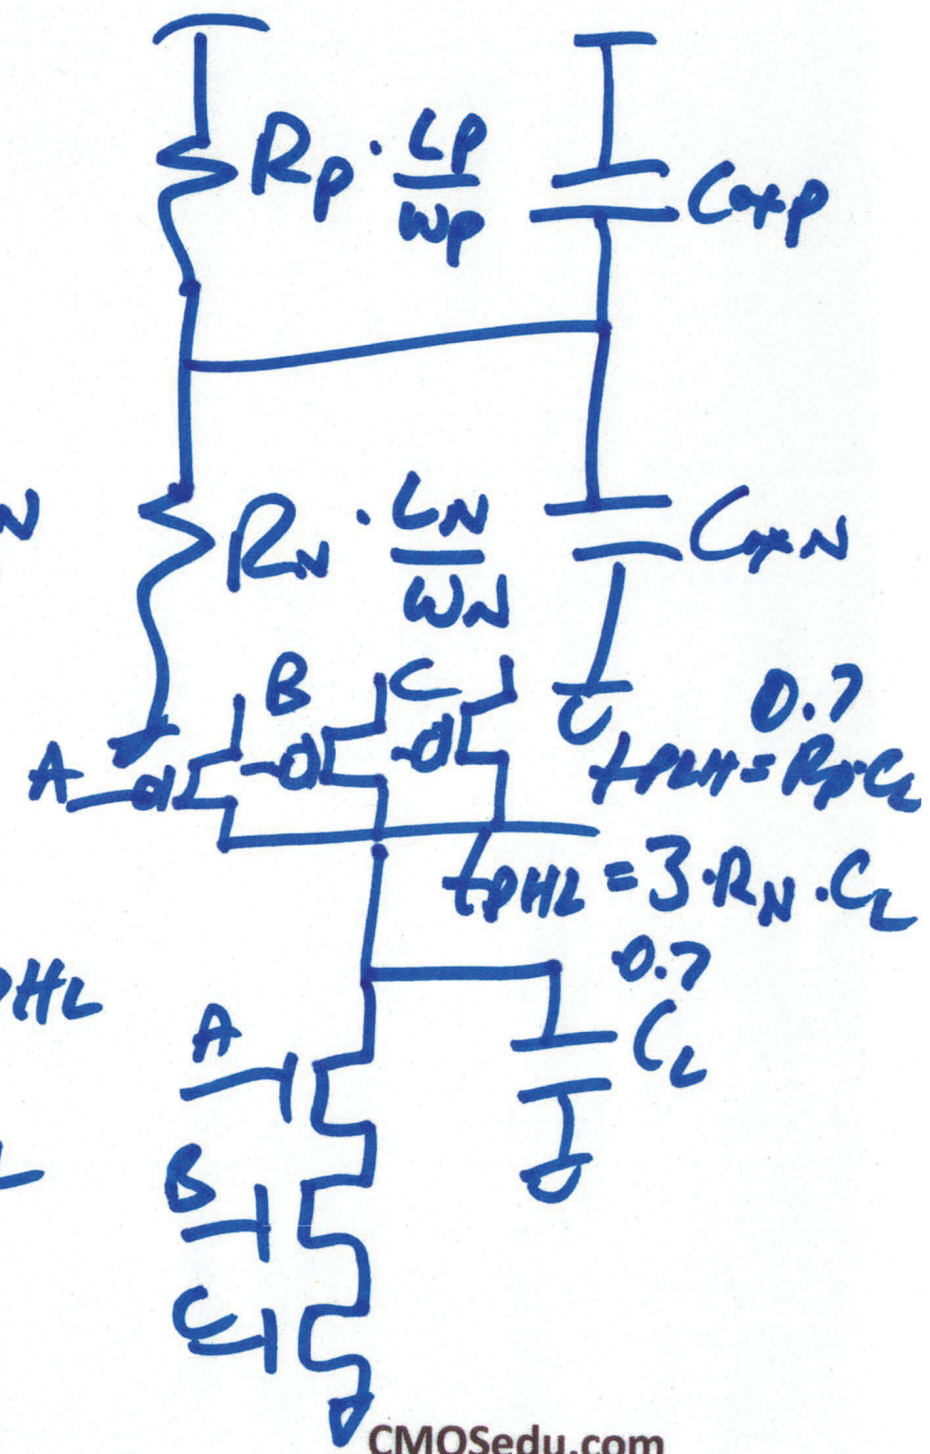 Rp · Lp
Wp
Coxp
N
RN · LN
WN
CoxN
B
C
A
0.7
tPLH = Rp·CL
tPHL = 3·RN·CL
·0.7
PHL
A
CL
B
L
C
CMOSedu.com